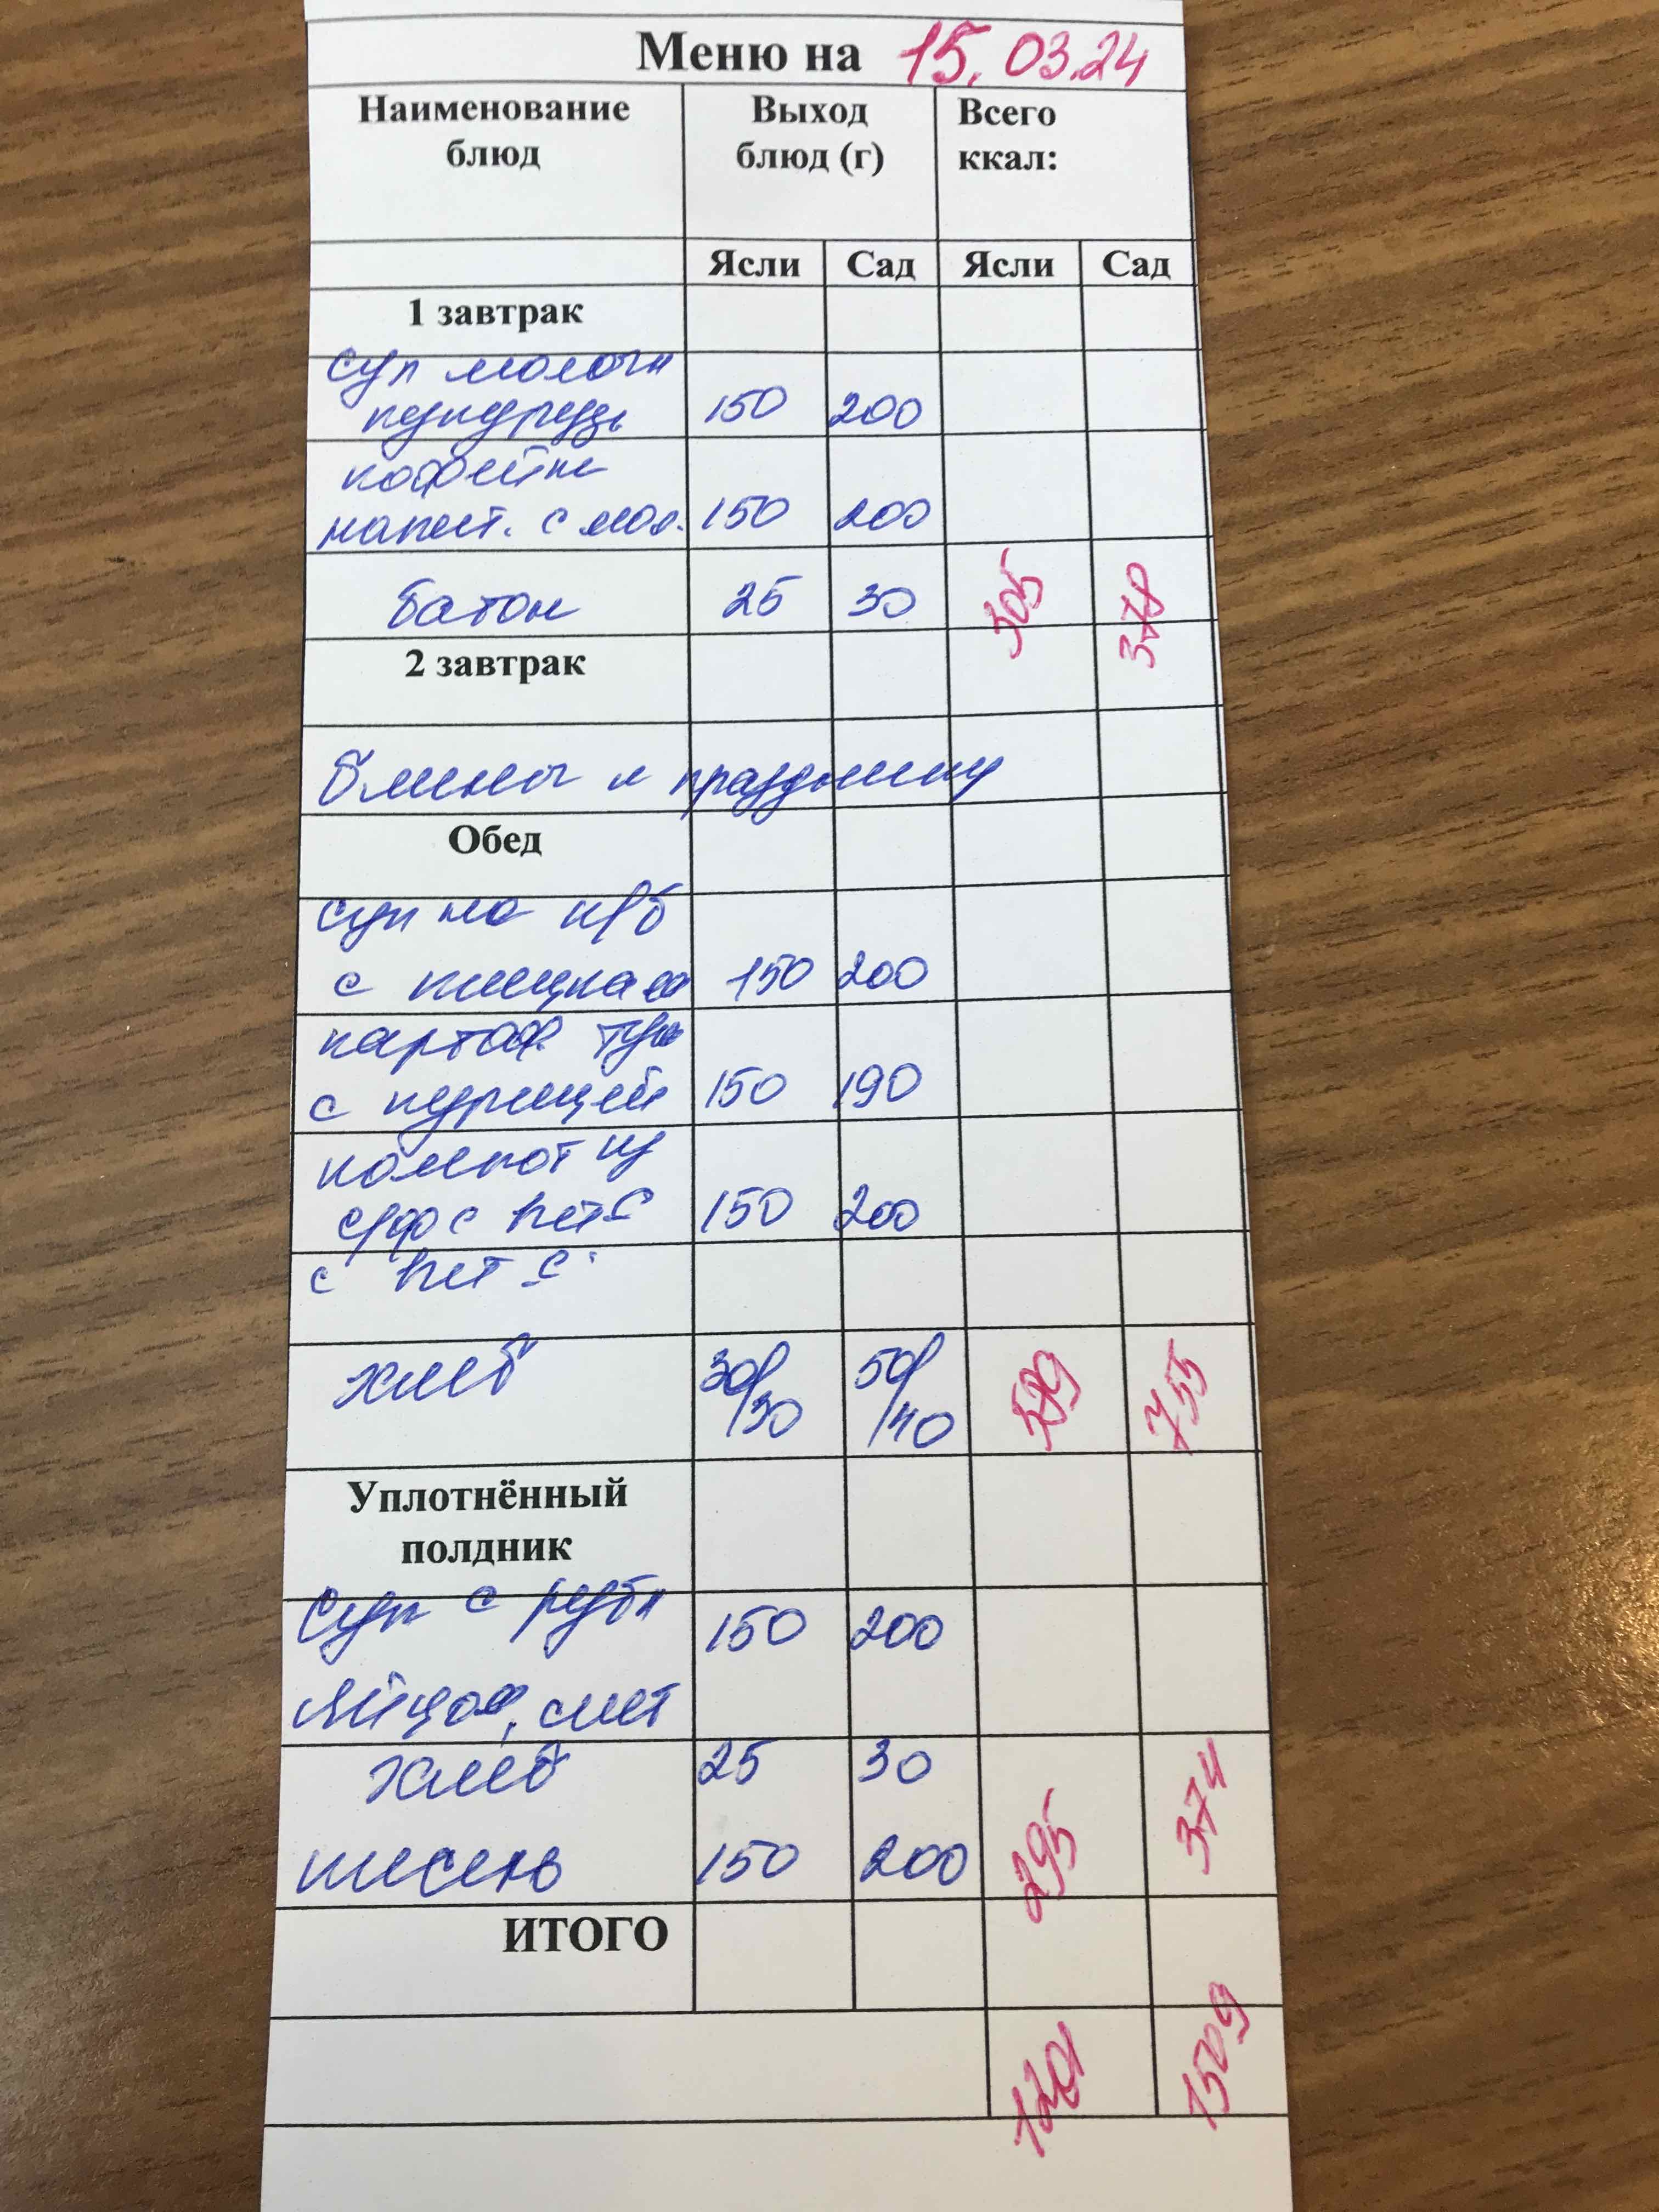 Меню на 15.03.24
Наименование блюд Выход блюд (г) Всего ккал:
Ясли Сад Ясли Сад
1 завтрак
суп молочн
кукурузн 150 200
кофейн
напит. с мол. 150 200
батон 25 30 305 378
2 завтрак
блины к празднику
Обед
суп на к/б
с клецками 150 200
картоф. туш
с курицей 150 190
компот из
с/ф с вит С 150 200
с вит С
хлеб 30/30 50/40 755
Уплотнённый
полдник
Суп с рыбн 150 200
яйцом, смет
хлеб 25 30
кисель 150 200 295 374
ИТОГО
1509